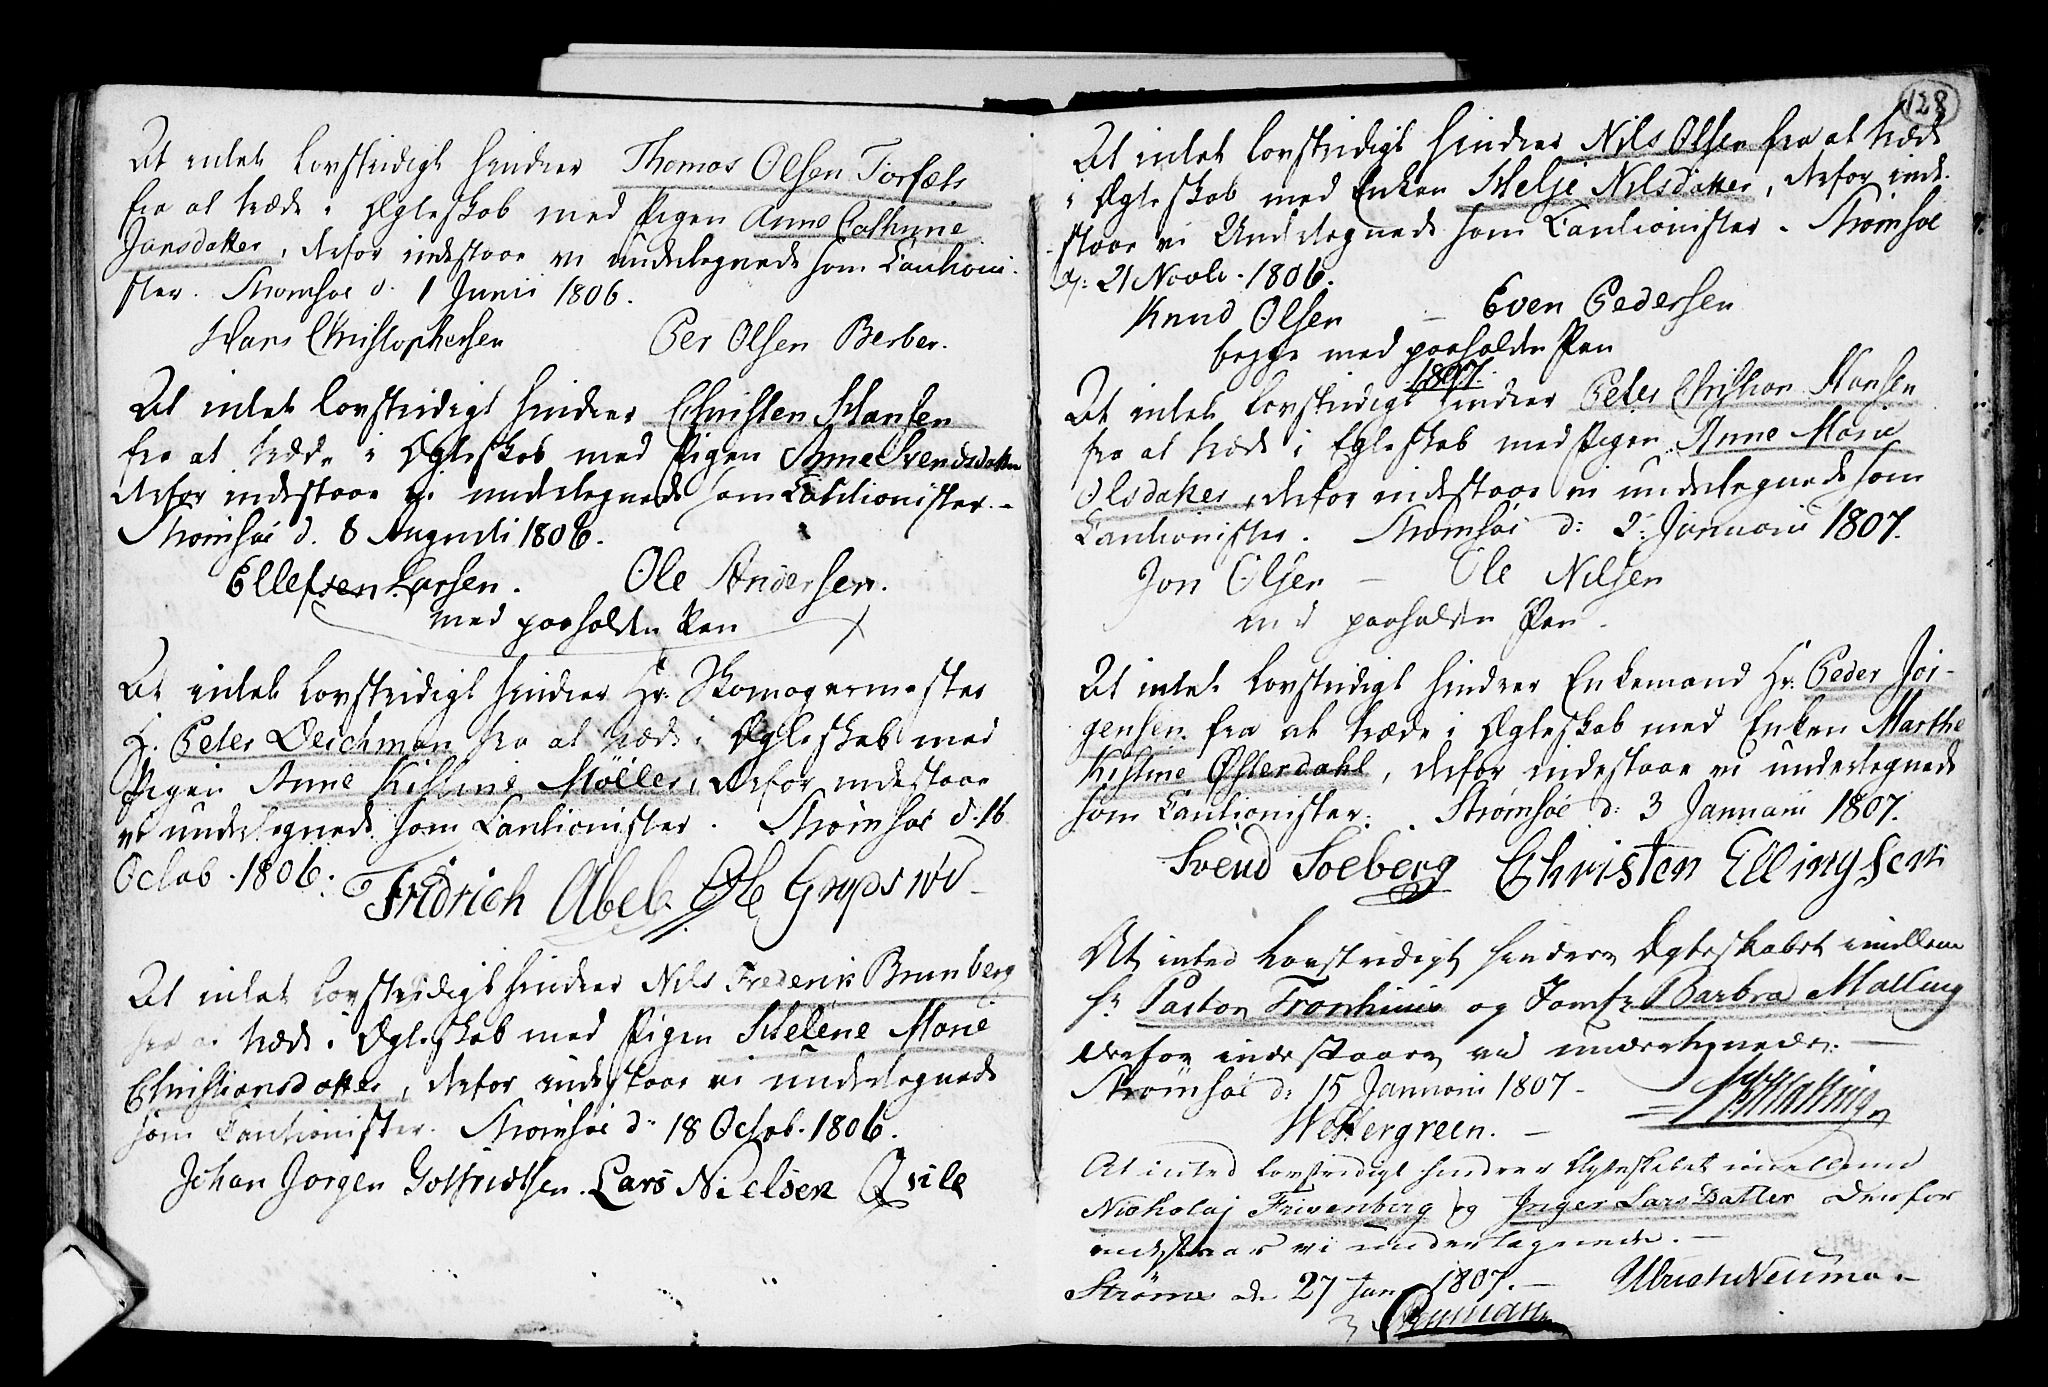 At intet lovstridigt hindrer Thomas Olsen
fra at træde i Ægteskab med Pigen Anne Cathrine
Jansdatter, derfor indestaae vi undertegnede som Cautioni-
ster. Strømsøe d. 1 Junii 1806.
Hans Christophersen Per Olsen Berber.
At intet lovstridigt hindrer Christen Hansen
fra at træde i Ægteskab med Pigen Anne Svendsdatter
derfor indestaae vi undertegnede som Cautionister. -
Strømsøe d. 8 Augusti 1806.
Ellefsen Larsen. Ole Andersen.
med paaholden Pen
At intet lovstridigt hindrer Hr. Skomagermester
H. Peter Deichman fra at træde i Ægteskab med
Pigen Anne Kistine Møller, derfor indestaae
vi undertegnede som Cautionister. Strømsøe d. 16
Octob. 1806.
Fridrich Abel Ole
At intet lovstridigt hindrer Nils Frederik Brunberg
fra at træde i Ægteskab med Pigen Helene Marie
Christiansdatter, derfor indestaae vi undertegnede
som Cautionister. Strømsøe d. 18 Octob. 1806.
Johan Jørgen Gotfridtsen. Lars Nielsen Qvile
128
At intet lovstridigt hindrer Nils Olsen fra at træde
i Ægteskab med Enken Helje Nilsdatter, derfor inde-
staae vi Undertegnede som Cautionister. Strømsøe
d: 21 Novbr. 1806.
Knud Olsen - Even Pedersen
begge med paaholden Pen
1807.
At intet lovstridigt hindrer Peter Christian Hansen
fra at træde i Egteskab med Pigen Anne Marie
Olsdatter, derfor indestaae vi undertegnede som
Cautionister. Strømsøe d: 2: Januarii 1807.
Jon Olsen - Ole Nilsen
med paaholden Pen.
At intet lovstridigt hindrer Enkemand Hr. Peder Jør-
gensen fra at træde i Ægteskab med Enken Marthe
Kistine Østerdahl, derfor indestaae vi undertegnede
som Cautionister. Strømsøe d: 3 Januarii 1807.
Svend Soeberg Christen Ellingsen
At inted Lovstridigt hindrer Ægteskabet imellem
hr Pastor og Jomfr Barbra Malling
derfor indestaaer vi undertegnede. -
Strømsøe d: 15 Januarii 1807 -
Wettergreen. - Malling
At inted lovstridigt hindrer Ægteskabet imellem
Nicholaj Frivenberg og Inger LarsDatter derfor
indestaar vi undertegnede. -
Strømsø den 27 Jan 1807. - Ulrich Neuman
Neumann